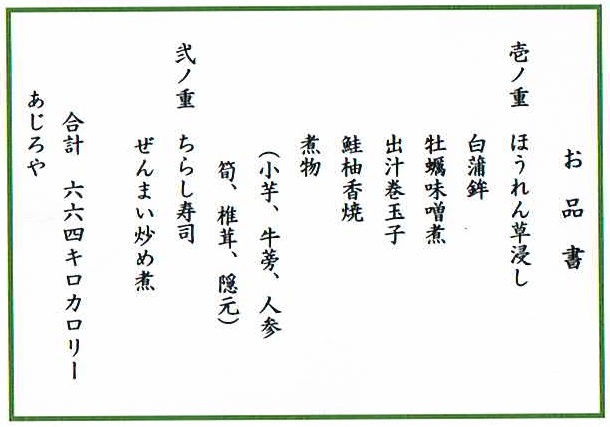 お品書
壱ノ重　ほうれん草浸し
白蒲鉾
牡蠣味噌煮
出汁巻玉子
鮭柚香焼
煮物
（小芋、牛蒡、人参
筍、椎茸、隠元）
弐ノ重　ちらし寿司
ぜんまい炒め煮
合計　六六四キロカロリー
あじろや